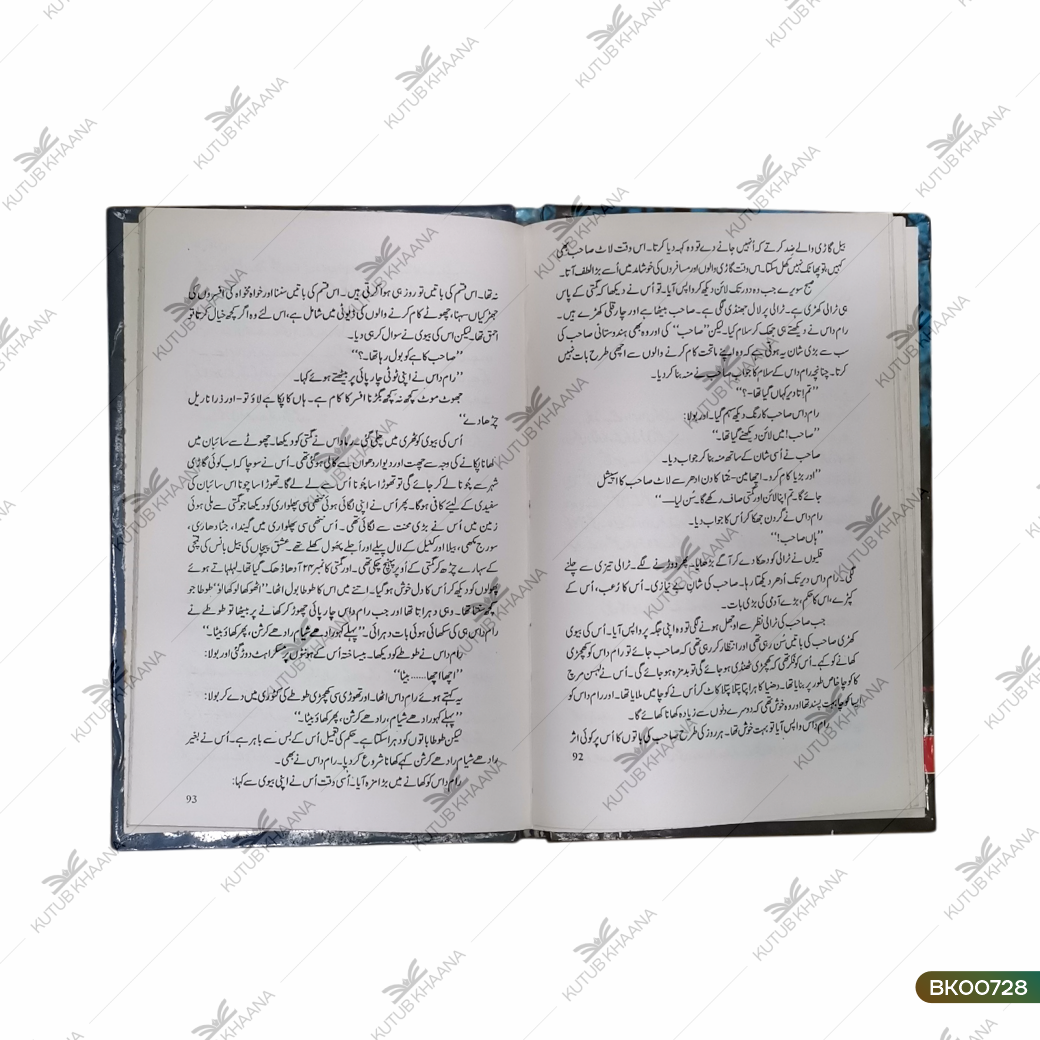 بیل گاڑی والے ضد کرتے کہ اُنہیں جانے دے تو وہ کہہ دیا کرتا۔ اس وقت لاٹ صاحب بھی
کہیں، تو پھاٹک نہیں کھل سکتا۔ اس وقت گاڑی والوں اور مسافروں کی خوشامد میں اُسے بڑا لطف آتا۔
صبح سویرے جب وہ دور تک لائن دیکھ کر واپس آیا۔ تو اُس نے دیکھا کہ گمتی کے پاس
ہی ٹرالی کھڑی ہے۔ ٹرالی پر لال جھنڈی لگی ہے۔ صاحب بیٹھا ہے اور چار قلی کھڑے ہیں۔
رام داس نے دیکھتے ہی جھک کر سلام کیا۔ لیکن ’’صاحب‘‘ کی اور وہ بھی ہندوستانی صاحب کی
سب سے بڑی شان یہ ہوتی ہے کہ وہ اپنے ماتحت کام کرنے والوں سے اچھی طرح بات نہیں
کرتا۔ چنانچہ رام داس کے سلام کا جواب صاحب نے منہ بنا کر دیا۔
’’تم اتنا دیر کہاں گیا تھا-؟‘‘
رام داس صاحب کا رنگ دیکھ سہم گیا۔ اور بولا:
’’صاحب! میں لائن دیکھنے گیا تھا۔‘‘
صاحب نے اُسی شان کے ساتھ منہ بنا کر جواب دیا۔
’’اور بڑیا کام کرو۔ اچھا مین- نتا کا دن ادھر سے لاٹ صاحب کا اسپیشل
جائے گا۔ تم اپنا لائن اور گمتی صاف رکھے گا۔ سُن لیا—‘‘
رام داس نے گردن جھکا کر اُس کا جواب دیا۔
’’ہاں صاحب!‘‘
قلیوں نے ٹرالی کو دھکا دے کر آگے بڑھایا۔ پھر دوڑنے لگے۔ ٹرالی تیزی سے چلنے
لگی۔ رام داس دیر تک اُدھر دیکھتا رہا۔ صاحب کی شانِ بے نیازی۔ اُس کا رُعب، اُس کے
کپڑے، اس کا حکم، بڑے آدمی کی بڑی بات۔
جب صاحب کی ٹرالی نظر سے اوجھل ہونے لگی تو وہ اپنی جگہ پر واپس آیا۔ اُس کی بیوی
کھڑی صاحب کی باتیں سُن رہی تھی اور انتظار کر رہی تھی کہ صاحب جائے تو رام داس کو کھچڑی
کھانے کو کہے۔ اُس کو فکر تھی کہ کھچڑی ٹھنڈی ہو جائے گی تو بدمزہ ہو جائے گی۔ اُس نے لہسن مرچ
کا کوچا خاص طور پر بنایا تھا۔ دھنیا کا ہرا پتا پتلا پتلا کاٹ کر اُس نے کوچا میں ملایا تھا۔ اور رام داس کو
ایسا کوچا بہت پسند تھا اور وہ خوش تھی کہ دوسرے دنوں سے زیادہ کھانا کھائے گا۔
رام داس واپس آیا تو بہت خوش تھا۔ ہر روز کی طرح صاحب کی باتوں کا اُس پر کوئی اثر
92
نہ تھا۔ اس قسم کی باتیں تو روز ہی ہوا کرتی ہیں۔ اس قسم کی باتیں سننا اور خواہ مخواہ کی افسروں کی
جھڑکیاں سہنا، چھوٹے کام کرنے والوں کی ڈیوٹی میں شامل ہے، اس لئے وہ اگر کچھ خیال کرتا تو
احمق تھا۔ لیکن اس کی بیوی نے سوال کر ہی دیا۔
’’صاحب کا ہے کو بول رہا تھا۔؟‘‘
’’رام داس نے اپنی ٹوٹی چارپائی پر بیٹھتے ہوئے کہا۔
جھوٹ موٹ کچھ نہ کچھ بگڑنا افسر کا کام ہے۔ ہاں کا پکا ہے لاؤ تو- اور ذرا ناریل
چڑھا دے‘‘
اُس کی بیوی کوٹھری میں چلی گئی۔ رام داس نے گمتی کو دیکھا۔ چھوٹے سے سائبان میں
کھانا پکانے کی وجہ سے چھت اور دیوار دھواں سے کالی ہو گئی تھی۔ اُس نے سوچا کہ اب کوئی گاڑی
شہر سے چونا لے کر جائے گی تو تھوڑا سا چونا اُس سے لے لے گا۔ تھوڑا سا چونا اس سائبان کی
سفیدی کے لیئے کافی ہوگا۔ پھر اُس نے اپنی لگائی ہوئی ننھی سی پھلواری کو دیکھا جو گمتی سے ملی ہوئی
زمین میں اُس نے بڑی محنت سے لگائی تھی۔ اُس ننھی سی پھلواری میں گیندا، جٹا دھاری،
سورج مکھی، بیلا اور کنیل کے لال پیلے اور اُجلے پھول کھلے تھے۔ عشق پیچاں کی بیل بانس کی قمچی
کے سہارے چڑھ کر گمتی کے اُوپر پہنچ چکی تھی۔ اور گمتی کا نمبر ۲۲ آدھا ڈھک گیا تھا۔ لہلہاتے ہوئے
پھولوں کو دیکھ کر اُس کا دل خوش ہو گیا۔ اتنے میں اس کا طوطا بول اٹھا۔ ’’اٹھو کھا لو کھا لو‘‘ طوطا جو
کچھ سنتا تھا۔ وہی دہراتا تھا اور جب رام داس چارپائی چھوڑ کر کھانے پر بیٹھا تو طوطے نے
رام داس ہی کی سکھائی ہوئی بات دہرائی۔ ’’پہلے کہو رادھے شیام رادھے کرشن، پھر کھاؤ بیٹا۔‘‘
رام داس نے طوطے کو دیکھا۔ بیساختہ اُس کے ہونٹوں پر مسکراہٹ دوڑ گئی اور بولا:
’’اچھا اچھا ...... بیٹا‘‘
یہ کہتے ہوئے رام داس اٹھا۔ اور تھوڑی سی کھچڑی طوطے کی کٹوری میں دے کر بولا:
’’پہلے کہو رادھے شیام، رادھے کرشن، پھر کھاؤ بیٹا۔‘‘
لیکن طوطا باتوں کو دہرا سکتا ہے۔ حکم کی تعمیل اُس کے بس سے باہر ہے۔ اُس نے بغیر
رادھے شیام رادھے کرشن کہے کھانا شروع کر دیا۔ رام داس نے بھی۔
رام داس کو کھانے میں بڑا مزہ آیا۔ اُسی وقت اُس نے اپنی بیوی سے کہا:
93
KUTUB KHAANA
BK00728